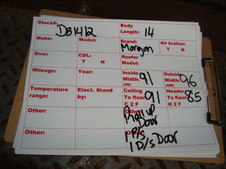 Stock#: DB1412 Body Length: 14
Make: Model: Brand: Morgan Air brakes: Y N
Gvw: CDL: Y N Reefer Model:
Mileage: Year: Inside Width: (W) 91 Outside Width: (W) 96
Temperature range: Elect. Stand by: Ceiling To floor: 91 Header To floor: 85
Other: Other: Roll up Door
P/S
Other: 1 D/s Door